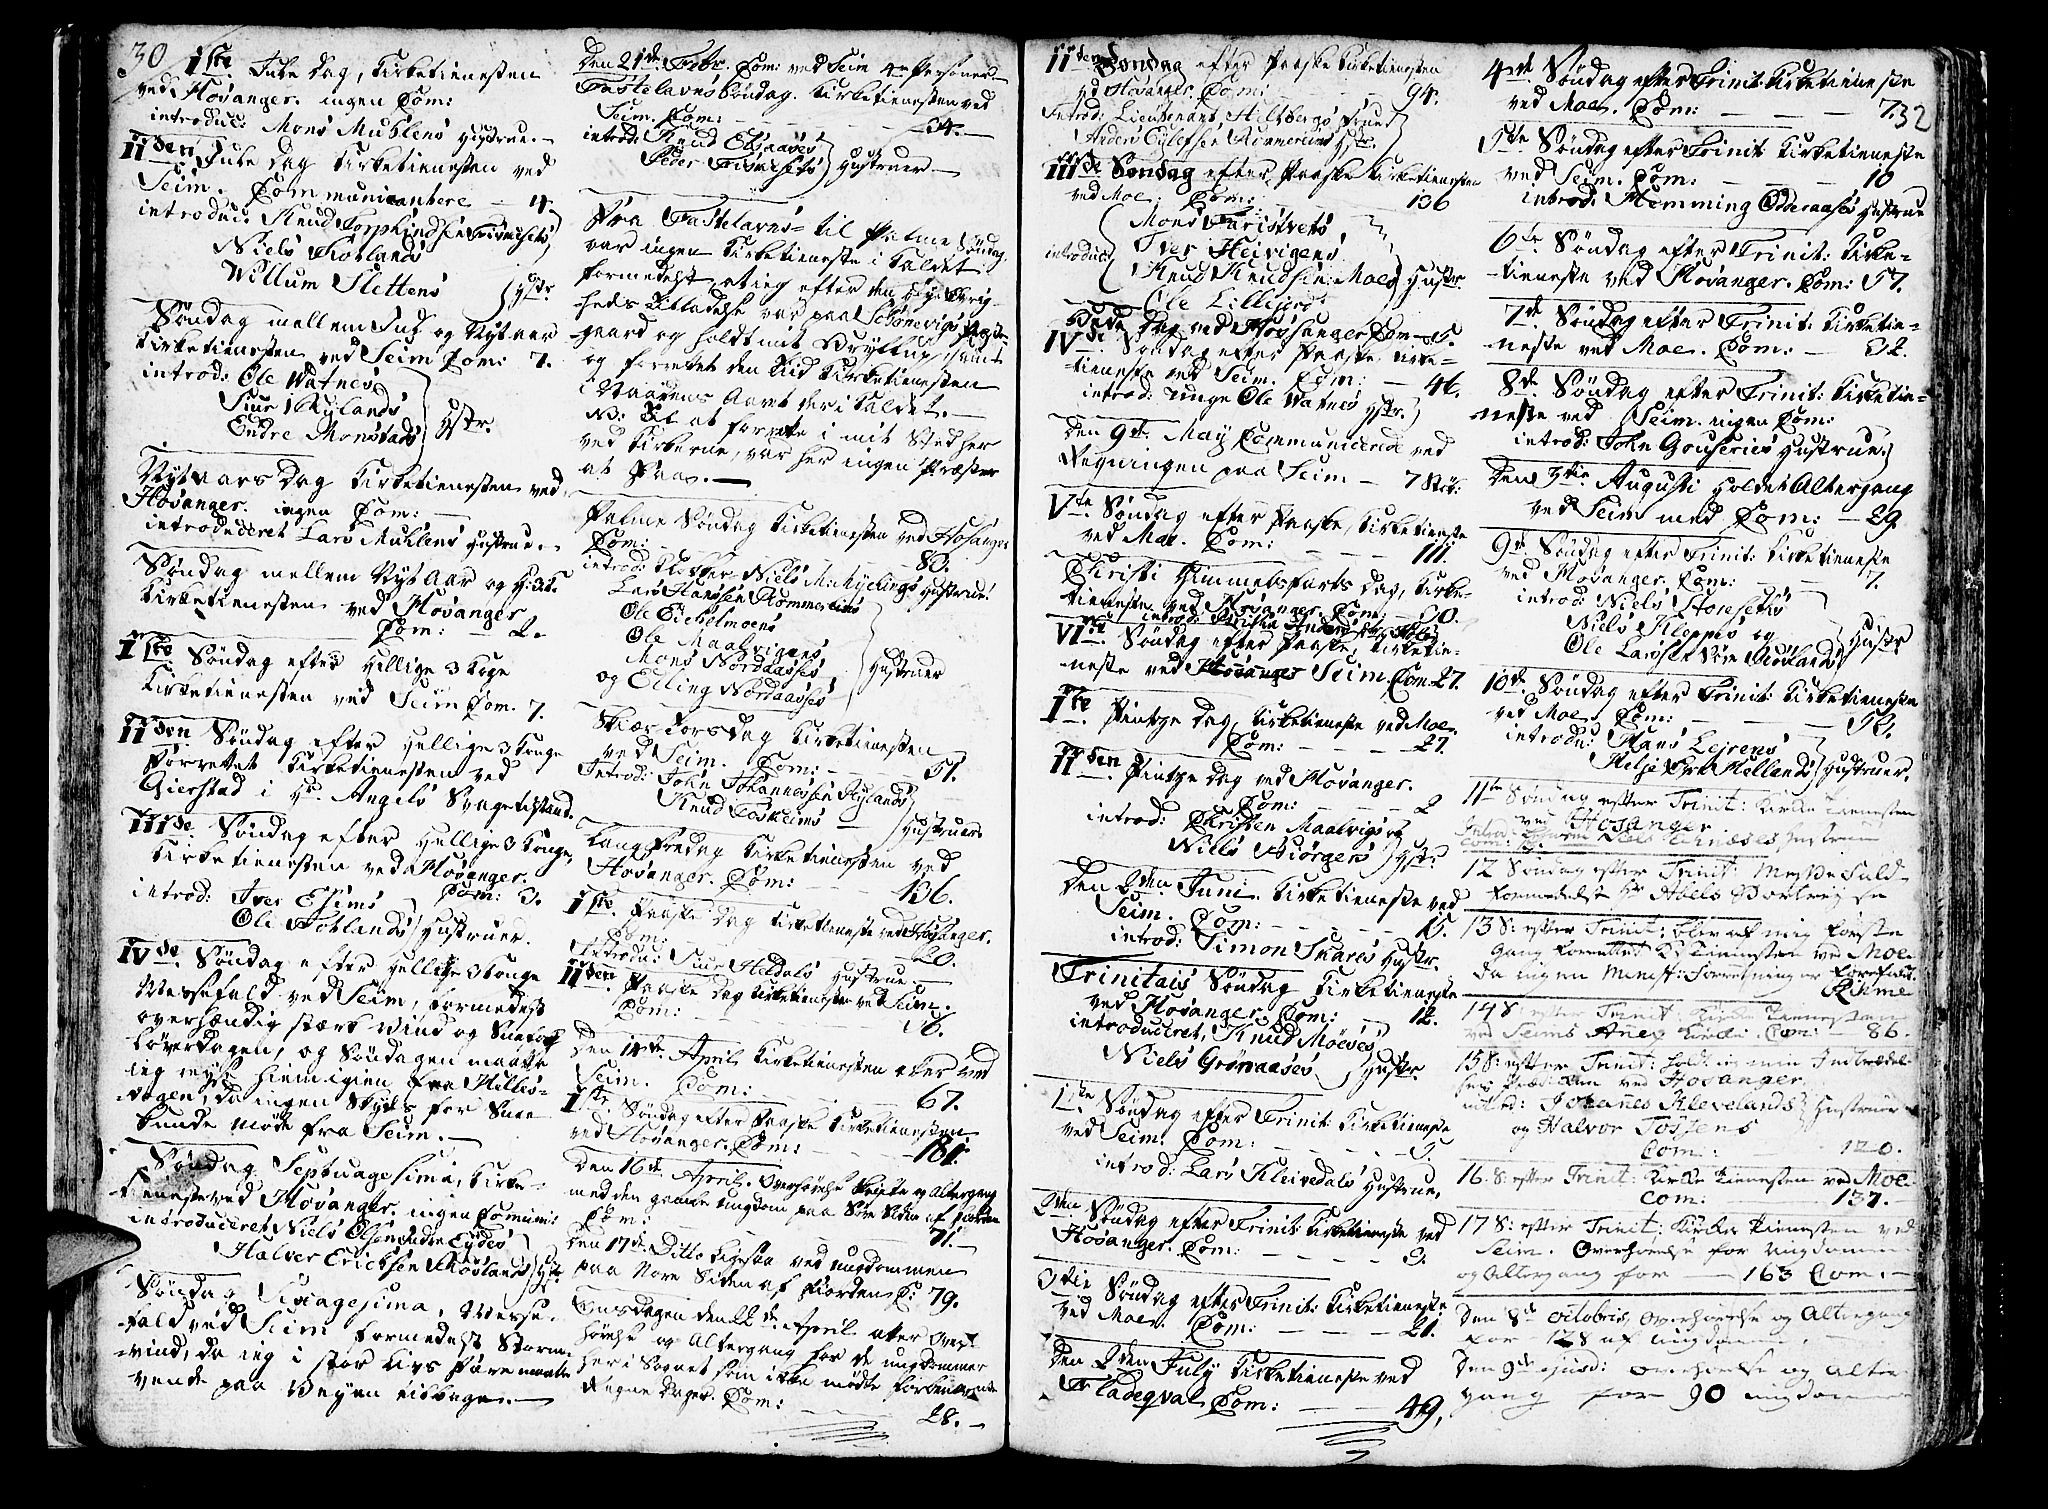 30
1ste Jule Dag, Kirketienesten
ved Hosanger. ingen Com:
introduc: Mons Muhlens Hustrue.
IIden Jule Dag Kirketienesten ved
Seim. Communicantere - 4.
introduc. Knud Torphindsen
Niels Fotlands
Willum Slettens } Hstr.
Søndag mellem Jul og Nytaar
Kirketienesten ved Seim Com: 7.
introd: Ole Watnes
Siur Rylands
Endre Monstads } Hstr.
Nytaars Dag Kirketienesten ved
Hosanger. ingen Com:
introduceret Lars Muhlens Hustrue.
Søndag mellem Nyt Aar og H: 3 K:
Kirketienesten ved Hosanger
Com: - 2.
Iste Søndag efter Hellige 3 Konge
Kirketienesten ved Seim Com. 7.
IIden Søndag efter Hellige 3 Konge
forrettet Kirketienesten ved
Gierstad i Hr. Angels Svaghed
IIIde Søndag efter Hellige 3 Konge,
Kirketienesten ved Hosanger.
introd: Iver Eisims Com: 3.
Ole Fotlands } Hustruer.
IVde Søndag efter Hellige 3 Konge
Messefald ved Seim, formedelst
overhændig stærk Wind og Snefog
Løverdagen, og Søndagen maatte
ieg reyse hiem igien fra Hilles-
vogen, da ingen Skyds for Snee
kunde møde fra Seim.
Søndag Septuagesima, Kirke-
tieneste ved Hosanger. ingen Comuni:
introduceret Niels Olsen Indre Eydes
Halver Ericksen Røslands } Hst.
Søndag Sexagesima, Messe-
fald ved Seim formedelst Storm-
wind, da ieg i stor Livs Fare maatte
vende paa Veyen tilbage.
Den 21de Febr. Com: ved Seim 4re Personer
Fastelavns Søndag. Kirketienesten ved
Seim. Com: - 34.
introd: Knud Elsaaes
Peder } Hustruer
Fra Fastelavns- til Palme Søndag
var ingen Kirketieneste i Kaldet,
formedelst, at ieg efter den høye Øvrig-
heds Tilladelse var paa Schonevigs Præste-
gaard og holdt mit Bryllup, samt
og forrettet den Tid Kirketienesten
i Naaurens Aamt der i Kaldet.
NB: Til at forrette i mit Sted her
ved Kirkerne, var her ingen Præster
at faae.
Palme Søndag Kirketienesten ved Hosanger
Com: - 80.
introd: Klokker Niels Hustrue.
Lars Hansen Rommerheims
Ole Eichelmoens
Ole Maalvigens
Mons Nordaasses
og Elling Nordaasses } Hustruer
Skiær Torsdag Kirketienesten
ved Seim. Com: 51.
Introd: John Johannessen Rylands
Knud Toskeims } Hustruer
Lang Fredag Kirketienesten ved
Hosanger. Com: 136.
Iste Paaske Dag Kirketieneste ved Hosanger.
Com: 20.
Introdu: Siur Heldals Hustrue.
IIden Paaske Dag Kirketieneste ved Seim.
Com: 56.
Den April Kirketienesten ved
Seim. Com: 67.
Iste Søndag efter Paaske Kirketienesten
ved Hosanger. Com: 181.
Den 16de April. Overhørelse Skrifte og Altergang
med den gandske ungdom paa Søre Siden af Fiorden
Com: 71.
Den 17de Ditto ligesaa ved ungdommen
paa Nore Siden af Fiorden C: 79.
Onsdagen den 22de April atter Over-
hørelse og Altergang for de ungdommer
her i Sognet som ikke mødte forbemeldte
Regne Dager. Com: 28.
IIden Søndag efter Paaske Kirketienesten
ved Hosanger. Com: 94.
Introd: Lieutenant Heltbergs Fruer
Anders Eylefsen Hstr.
IIIde Søndag efter Paaske Kirketienesten
ved Moe. Com: 136
introduc: Mons Farestvets,
Iver Heivigens
Knud Knudsen Moes
Ole Lillejords } Hustr.
Bede Dag ved Hossanger Com - 5.
IVde Søndag efter Paaske Kirke-
tieneste ved Seim. Com: - 46.
introd: unge Ole Watnes Hstr.
Den 9de May Communicerede ved
Regningen paa Seim - 7 Stk:
Vte Søndag efter Paaske, Kirketieneste
ved Moe. Com: 111.
Christi Himmelfarts Dag, Kirke-
tieneste ved Hosanger. Com: 50.
VIte Søndag efter Paaske, Kirketie-
neste ved Seim. Com. 27.
Iste Pintze Dag Kirketieneste ved Moe.
Com: 27.
IIden Pintze Dag ved Hosanger.
Com: 2
introd: Christen Maalvigs og
Nills Biørgers } Hstr.
Den 2den Juni. Kirketieneste ved
Seim. Com: 15.
introd: Simon Skares Hustr.
Trinitais Søndag Kirketieneste
ved Hosanger. Com: 12.
introduceret, Knud Moeves
Niels Grønaases } Hustr.
1ste Søndag efter Trinit: Kirketieneste
ved Seim. Com: 5.
introd: Lars Kleivedals Hustrue.
2den Søndag efter Trinit: Kirketieneste ved
Hosanger. Com: 3.
3die Søndag efter Trinit: Kirketieneste
ved Moe. Com: 21.
Den 2den July Kirketieneste ved
Fladeqval Com: 49.
4rde Søndag efter Trinit: Kirketieneste
ved Moe. Com: 7.
32
5te Søndag efter Trinit: Kirketieneste
ved Seim. Com: 10
introd: Hemming Odderaases Hustrue
6te Søndag efter Trinit: Kirke-
tieneste ved Hosanger. Com: 57.
7de Søndag efter Trinit: Kirketie-
neste ved Moe. Com: - 32.
8de Søndag efter Trinit: Kirketie-
neste ved Seim. ingen Com:
introd: John Gouseries Hustrue.
Den 3die Augusti holdet Altergang
ved Seim med Com: - 29
9de Søndag efter Trinit: Kirketieneste
ved Hosanger. Com: 7.
introd: Niels Hosesets
Niels Kleppes og
Ole Larssen Røslands } Hustr
10de Søndag efter Trinit: Kirketieneste
ved Moe. Com: 50.
introdu: Hans Lejrens
Helje Hellands } Hustruer.
11te Søndag efter Trinit: Kirke Tienesten
ved Hosanger
Introd: Niels Hustrue
12 Søndag efter Trinit: Messe Fald
formedelst Hr Abels Bortreyse
13 S: efter Trinit: blev af mig første
Gang forrettet K: Tienesten ved Moe.
da ingen Minist: Forretning er forefaldt.
14 S: efter Trinit: Kirke Tienesten
ved Seims Anex Kirke. Com: - 86.
15 S: efter Trinit: holdt ieg min Indtrædel-
ses Prædiken ved Hosanger.
introd: Johañes Klevelands
og Halvor Tossens } Hustruer
Com: 120.
16 S: efter Trinit: Kirke Tienesten ved Moe.
Com: 137.
17 S: efter Trinit: Kirke Tienesten ved
Seim. Overhørelse for Ungdommen
og Altergang for - 163 Com:
Den 8de Octobris, Overhørelse og Altergang
for 128 af ungdommen.
Den 9de ejusd: Overhørelse og Alter-
gang for 90 ungdommer